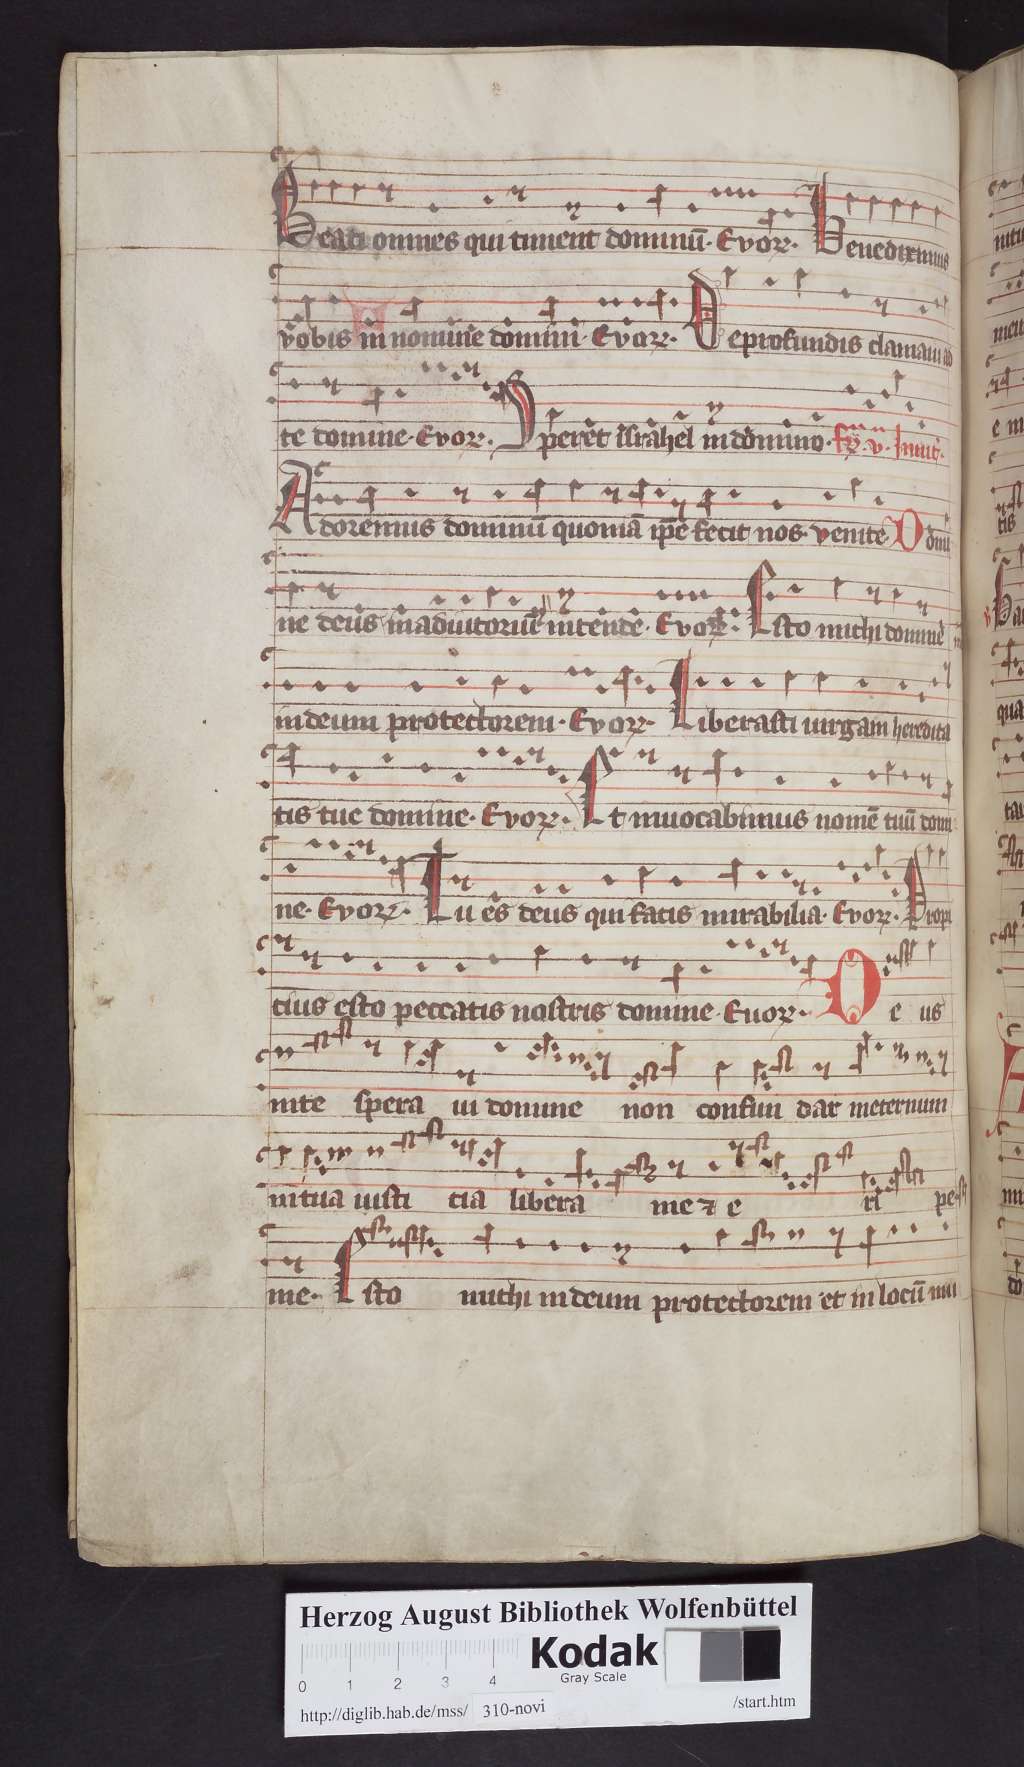 Beati omnes qui timent dominū· Evoꝝ· Benediximus
vobis in nomine domini· Evoꝝ· De profundis clamavi ad
te domine· Evoꝝ· Speret israhel in domino· fꝫ· v· Inuit·
Adoremus dominū quoniā ipse fecit nos· venite Domi
ne deus in adiutoriū intende· Evoꝝ· Esto michi domine
in deum protectorem· Evoꝝ· Liberasti uirgam heredita
tis tue domine· Evoꝝ· Et inuocabimus nomē tuū domi
ne· Evoꝝ· Tu es deus qui facis mirabilia· Evoꝝ· Propi
cius esto peccatis nostris domine· Euoꝝ· De us
in te spera ui domine non confun dar in eternum
in tua iusti cia libera me ⁊ e ri pe
me· Esto michi in deum protectorem et in locū mu
Herzog August Bibliothek Wolfenbüttel
Kodak
Gray Scale
0 1 2 3 4
http://diglib.hab.de/mss/ 310-novi /start.htm